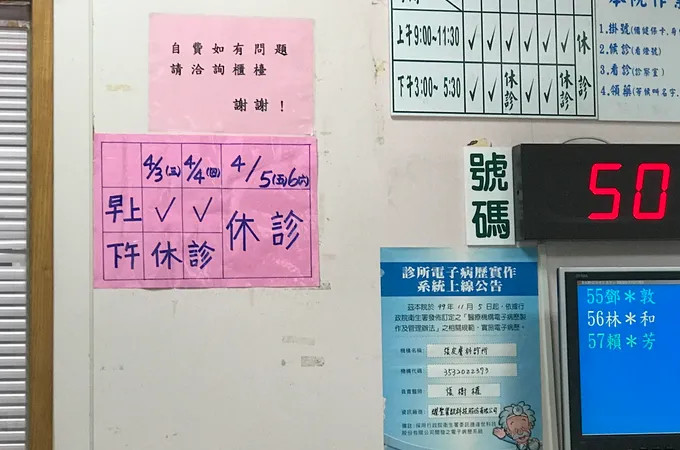 自費如有問題
請洽詢櫃檯
謝謝！
4/3(三) 4/4(四) 4/5(五)6(六)
早上 ✓ ✓ 休診
下午 休診
上午9:00~11:30 ✓ ✓ ✓ ✓ ✓ ✓ 休診
下午3:00~5:30 ✓ ✓ 休診 ✓ ✓ 休診
1.掛號
2.候診(看燈號)
3.看診(診察室)
4.領藥(等候叫名字.
號碼
50
55鄧＊敦
56林＊和
57賴＊芳
診所電子病歷實作
系統上線公告
茲本院於 99 年 11 月 5 日起，依據行
政院衛生署發佈訂定之「醫療機構電子病歷製
作及管理辦法」之相關規範，實施電子病歷。
機構名稱：張皮膚科診所
機構代碼：3532022393
負責醫師：張樹權
資訊廠商：耀聖資訊科技股份有限公司